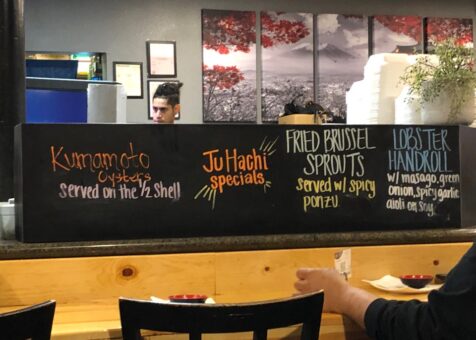 Kumamoto
Oysters
served on the ½ Shell
Ju Hachi
specials
FRIED BRUSSEL
SPROUTS
served w/ spicy
ponzu
LOBSTER
HANDROLL
w/ masago, green
onion, spicy garlic
aioli on soy